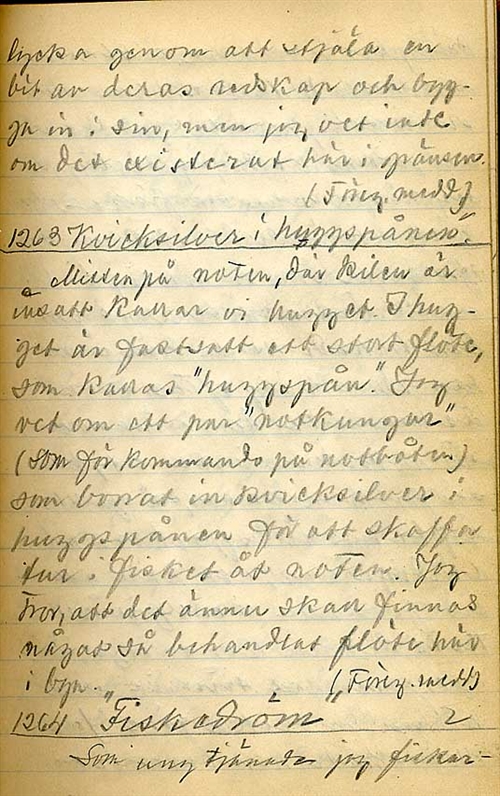 lycka genom att stjäla en
bit av deras redskap och byg-
ga in i sin, men jag vet inte
om det existerat här i gränsen.
(Föreg. medd)
1263 Kvicksilver i huggspånen".
Mitten på noten, där kilen är
insatt kallar vi hugget. I hug-
get är fastsatt ett stort flöte,
som kallas "huggspån." Jag
vet om ett par "notkungar"
(som för kommando på notbåten)
som borrat in kvicksilver i
huggspånen för att skaffa
tur i fisket åt noten. Jag
tror, att det ännu skall finnas
något så behandlat flöte här
i byn. (Föreg. medd)
1264 "Fiskedröm" 2
Som ung tjänade jag fiskar-